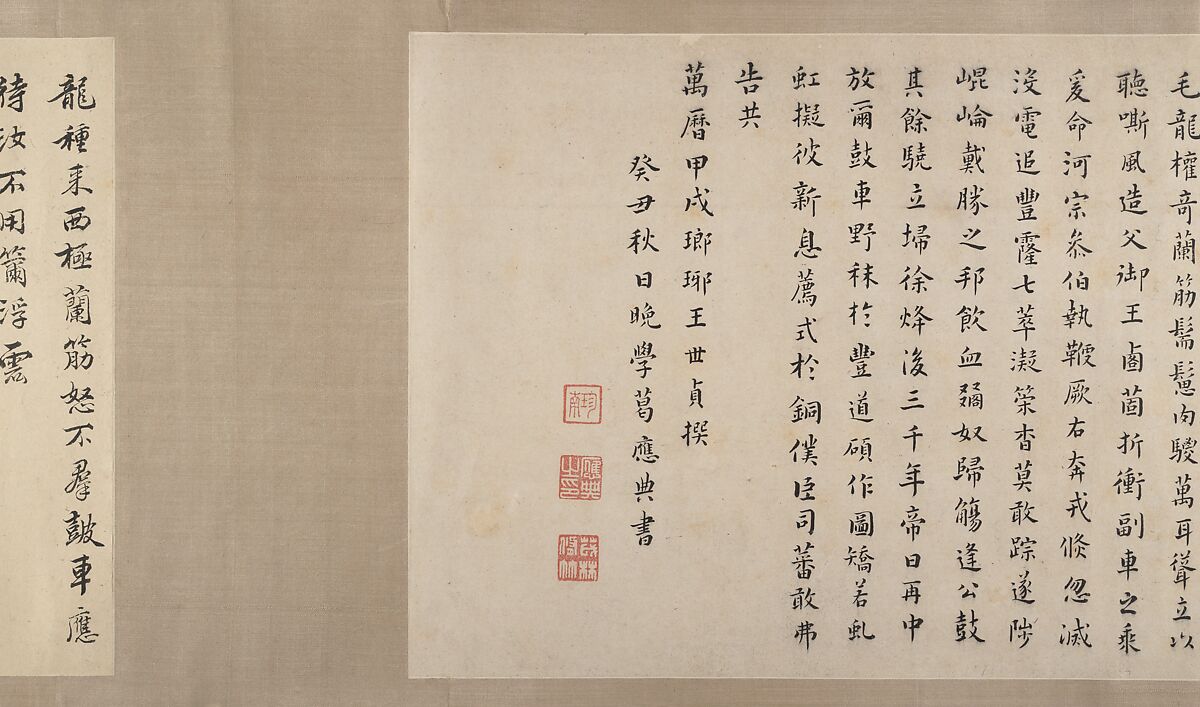 毛龍權奇蘭筋髵鬛肉騣萬耳聳立以
聽嘶風造父御王鹵菌折衝副車之乘
爰命河宗叅伯執鞭厥右奔戎倐忽滅
沒電追豐霳七萃凝䇿杳莫敢踪遂陟
崐崘戴勝之邦飲血弱奴歸觴逢公鼓
其餘驍立埽徐烽後三千年帝日再中
放爾鼓車野秣於豐道碩作圖矯若虬
虹擬彼新息薦式於銅僕臣司蕃敢弗
告共
萬曆甲戌瑯琊王世貞撰
癸丑秋日晚學葛應典書
珍南
應典之印
茂林修竹
龍種来西極蘭筋怒不羣皷車應
待汝不用籋浮雲